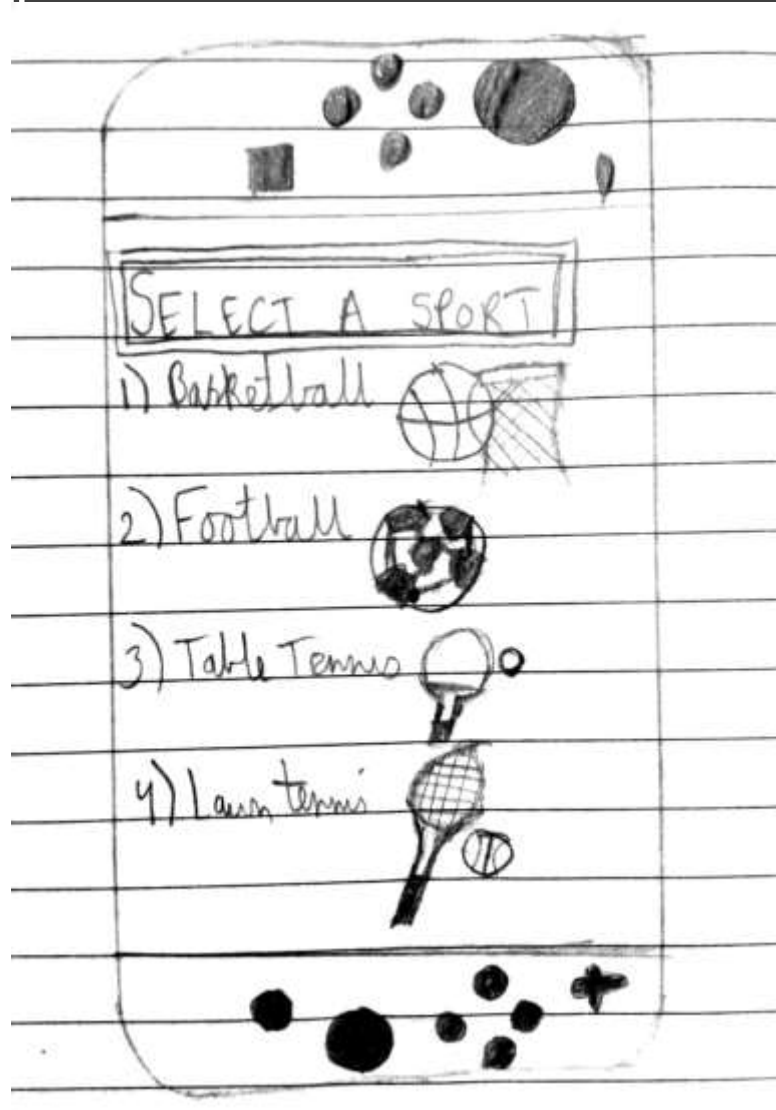 SELECT A SPORT
1) Basketball
2) Football
3) Table Tennis
4) Lawn tennis